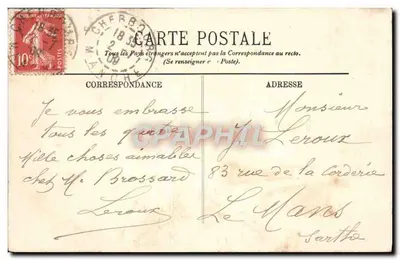 CARTE POSTALE
Tous les Pays étrangers n'acceptent pas la Correspondance au recto.
(Se renseigner à la Poste).
CORRESPONDANCE
ADRESSE
CHERBOURG
18
08
MANCHE
10
POSTES
Je vous embrasse
tous les quatre
Mille choses aimables
chez M. Brossard
Leroux
Monsieur
J. Leroux
83 rue de la Corderie
Le Mans
Sarthe
CPAPHIL